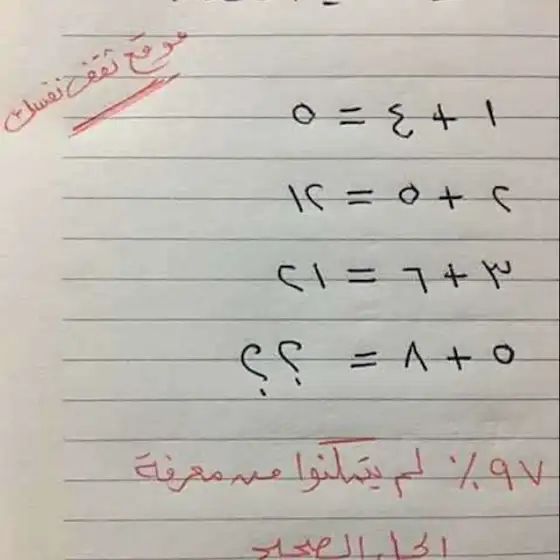 موقع ثقف نفسك
١ + ٤ = ٥
٢ + ٥ = ١٢
٣ + ٦ = ٢١
٥ + ٨ = ؟؟
٩٧٪ لم يتمكنوا من معرفة
الحل الصحيح